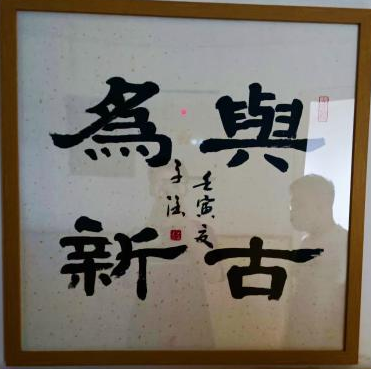 與古
為新
壬寅夏
子涵